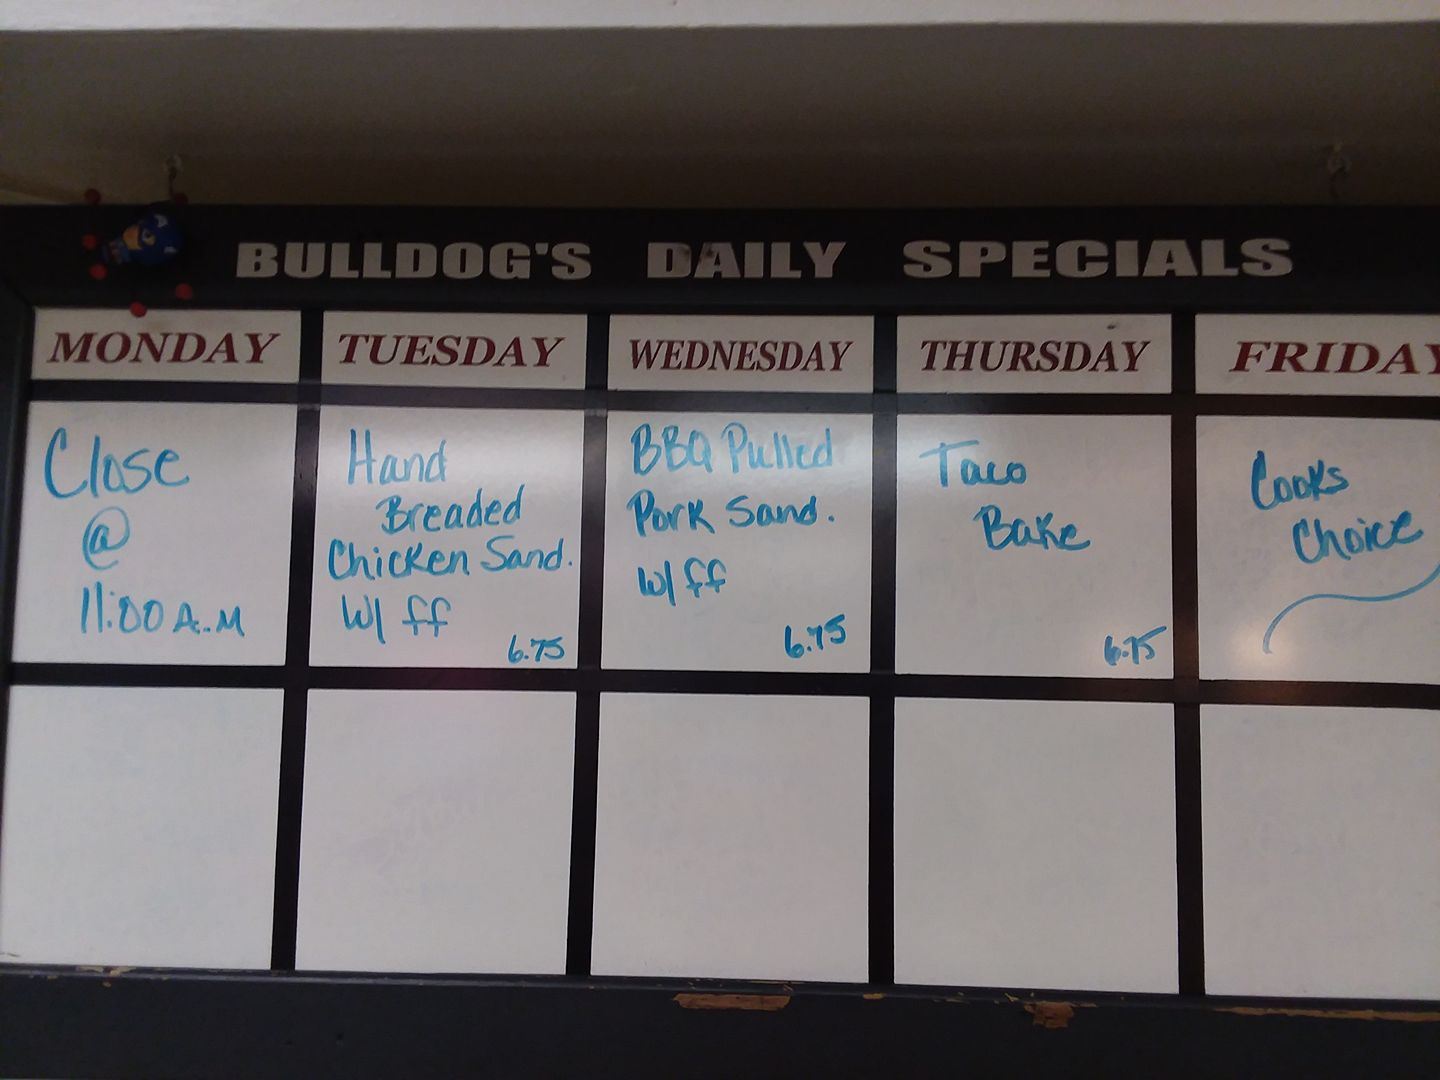 BULLDOG'S DAILY SPECIALS
MONDAY
Close
@
11:00 A.M
TUESDAY
Hand
Breaded
Chicken Sand.
W/ ff
6.75
WEDNESDAY
BBQ Pulled
Pork Sand.
W/ ff
6.75
THURSDAY
Taco
Bake
6.75
FRIDAY
Cooks
Choice